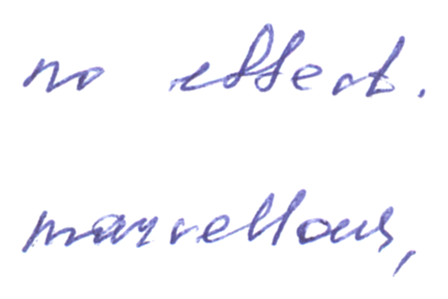 no effect.
marvellous,